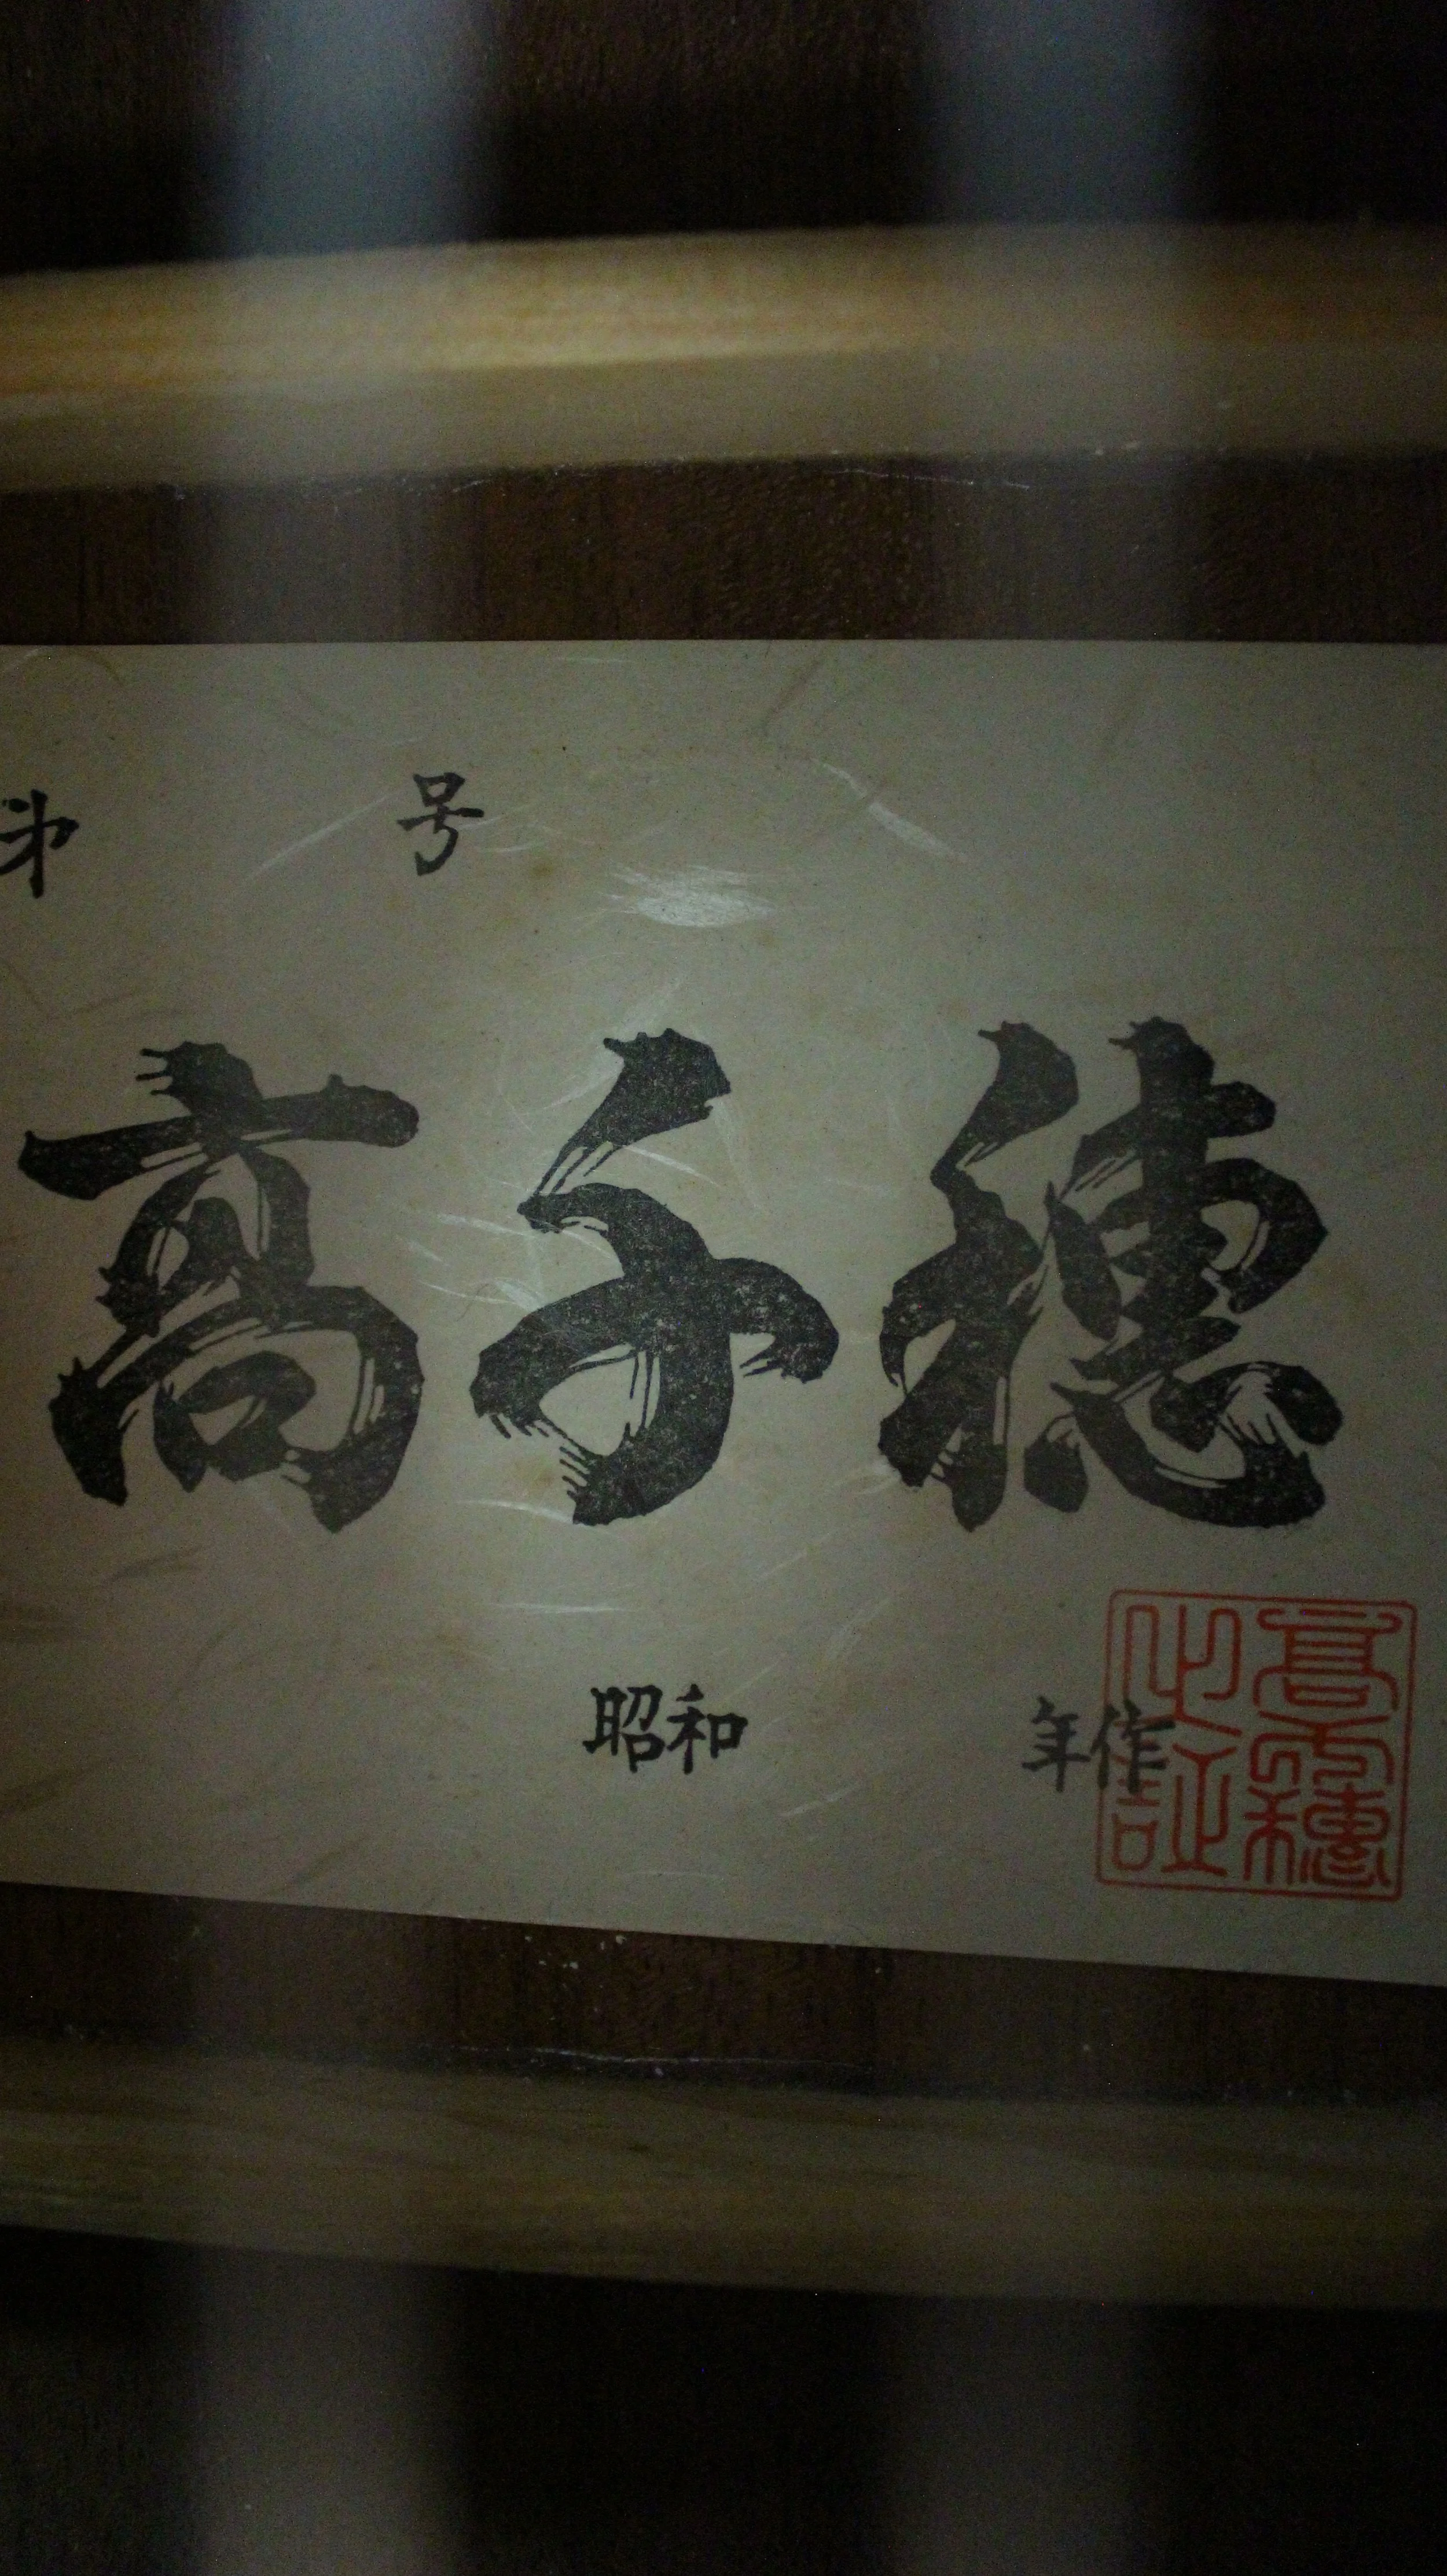 第 号
高千穂
昭和 年作
高千穂
之証